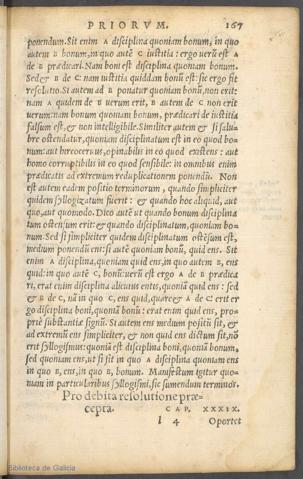 PRIORVM. 167
ponendum. Sit enim A disciplina quoniam bonum, in quo
autem B bonum, in quo autē C iustitia: ergo uerū est A
de B prædicari. Nam boni est disciplina quoniam bonum.
Sed & B de C: nam iustitia quiddam bonū est: sic ergo fit
resolutio. Si autem ad B ponatur quoniam bonū, non erit:
nam A quidem de B uerum erit, B autem de C non erit
uerum: nam bonum quoniam bonum, prædicari de iustitia
falsum est, & non intelligibile. Similiter autem & si salu
bre ostendatur, quoniam disciplinatum est in eo quod bo=
num: aut hircoceruus, opinabilis in eo quod existens: aut
homo corruptibilis in eo quod sensibile: in omnibus enim
prædicatis ad extremum reduplicationem ponendū. Non
est autem eadem positio terminorum, quando simpliciter
quidem syllogizatum fuerit: & quando hoc aliquid, aut
quo, aut quomodo. Dico autē ut quando bonum disciplina
tum ostensum erit: & quando disciplinatum, quoniam bo=
num. Sed si simpliciter quidem disciplinatum ostēsum est,
medium ponendū ens: si autē quoniam bonū, quid ens. Sit
enim A disciplina, quoniam quid ens, in quo autem B, ens
quid: in quo autē C, bonū: uerū est ergo A de B prædica
ri, erat enim disciplina alicuius entis, quoniā quid ens: sed
& B de C, nā in quo C, ens quid, quare & A de C erit er
go disciplina boni, quoniā bonū: erat enim quid ens, pro=
priæ substātiæ signū. Si autem ens medium positū sit, &
ad extremū ens simpliciter, & non quid ens dictum sit, nō
erit syllogismus: quoniā est disciplina boni, quoniā bonum,
sed quoniam ens, ut si sit in quo A disciplina quoniam ens
in quo B, ens, in quo C, bonum. Manifestum igitur quo=
niam in particularibus syllogismi, sic sumendum terminos.
Pro debita resolutione præ=
cepta. CAP. XXXIX.
l 4 Oportet
Biblioteca de Galicia